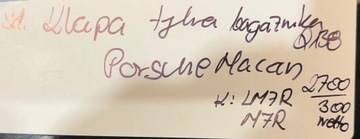 Klapa tylna bagażnika
Porsche Macan
K: LM7R 2700
M7R 300
netto